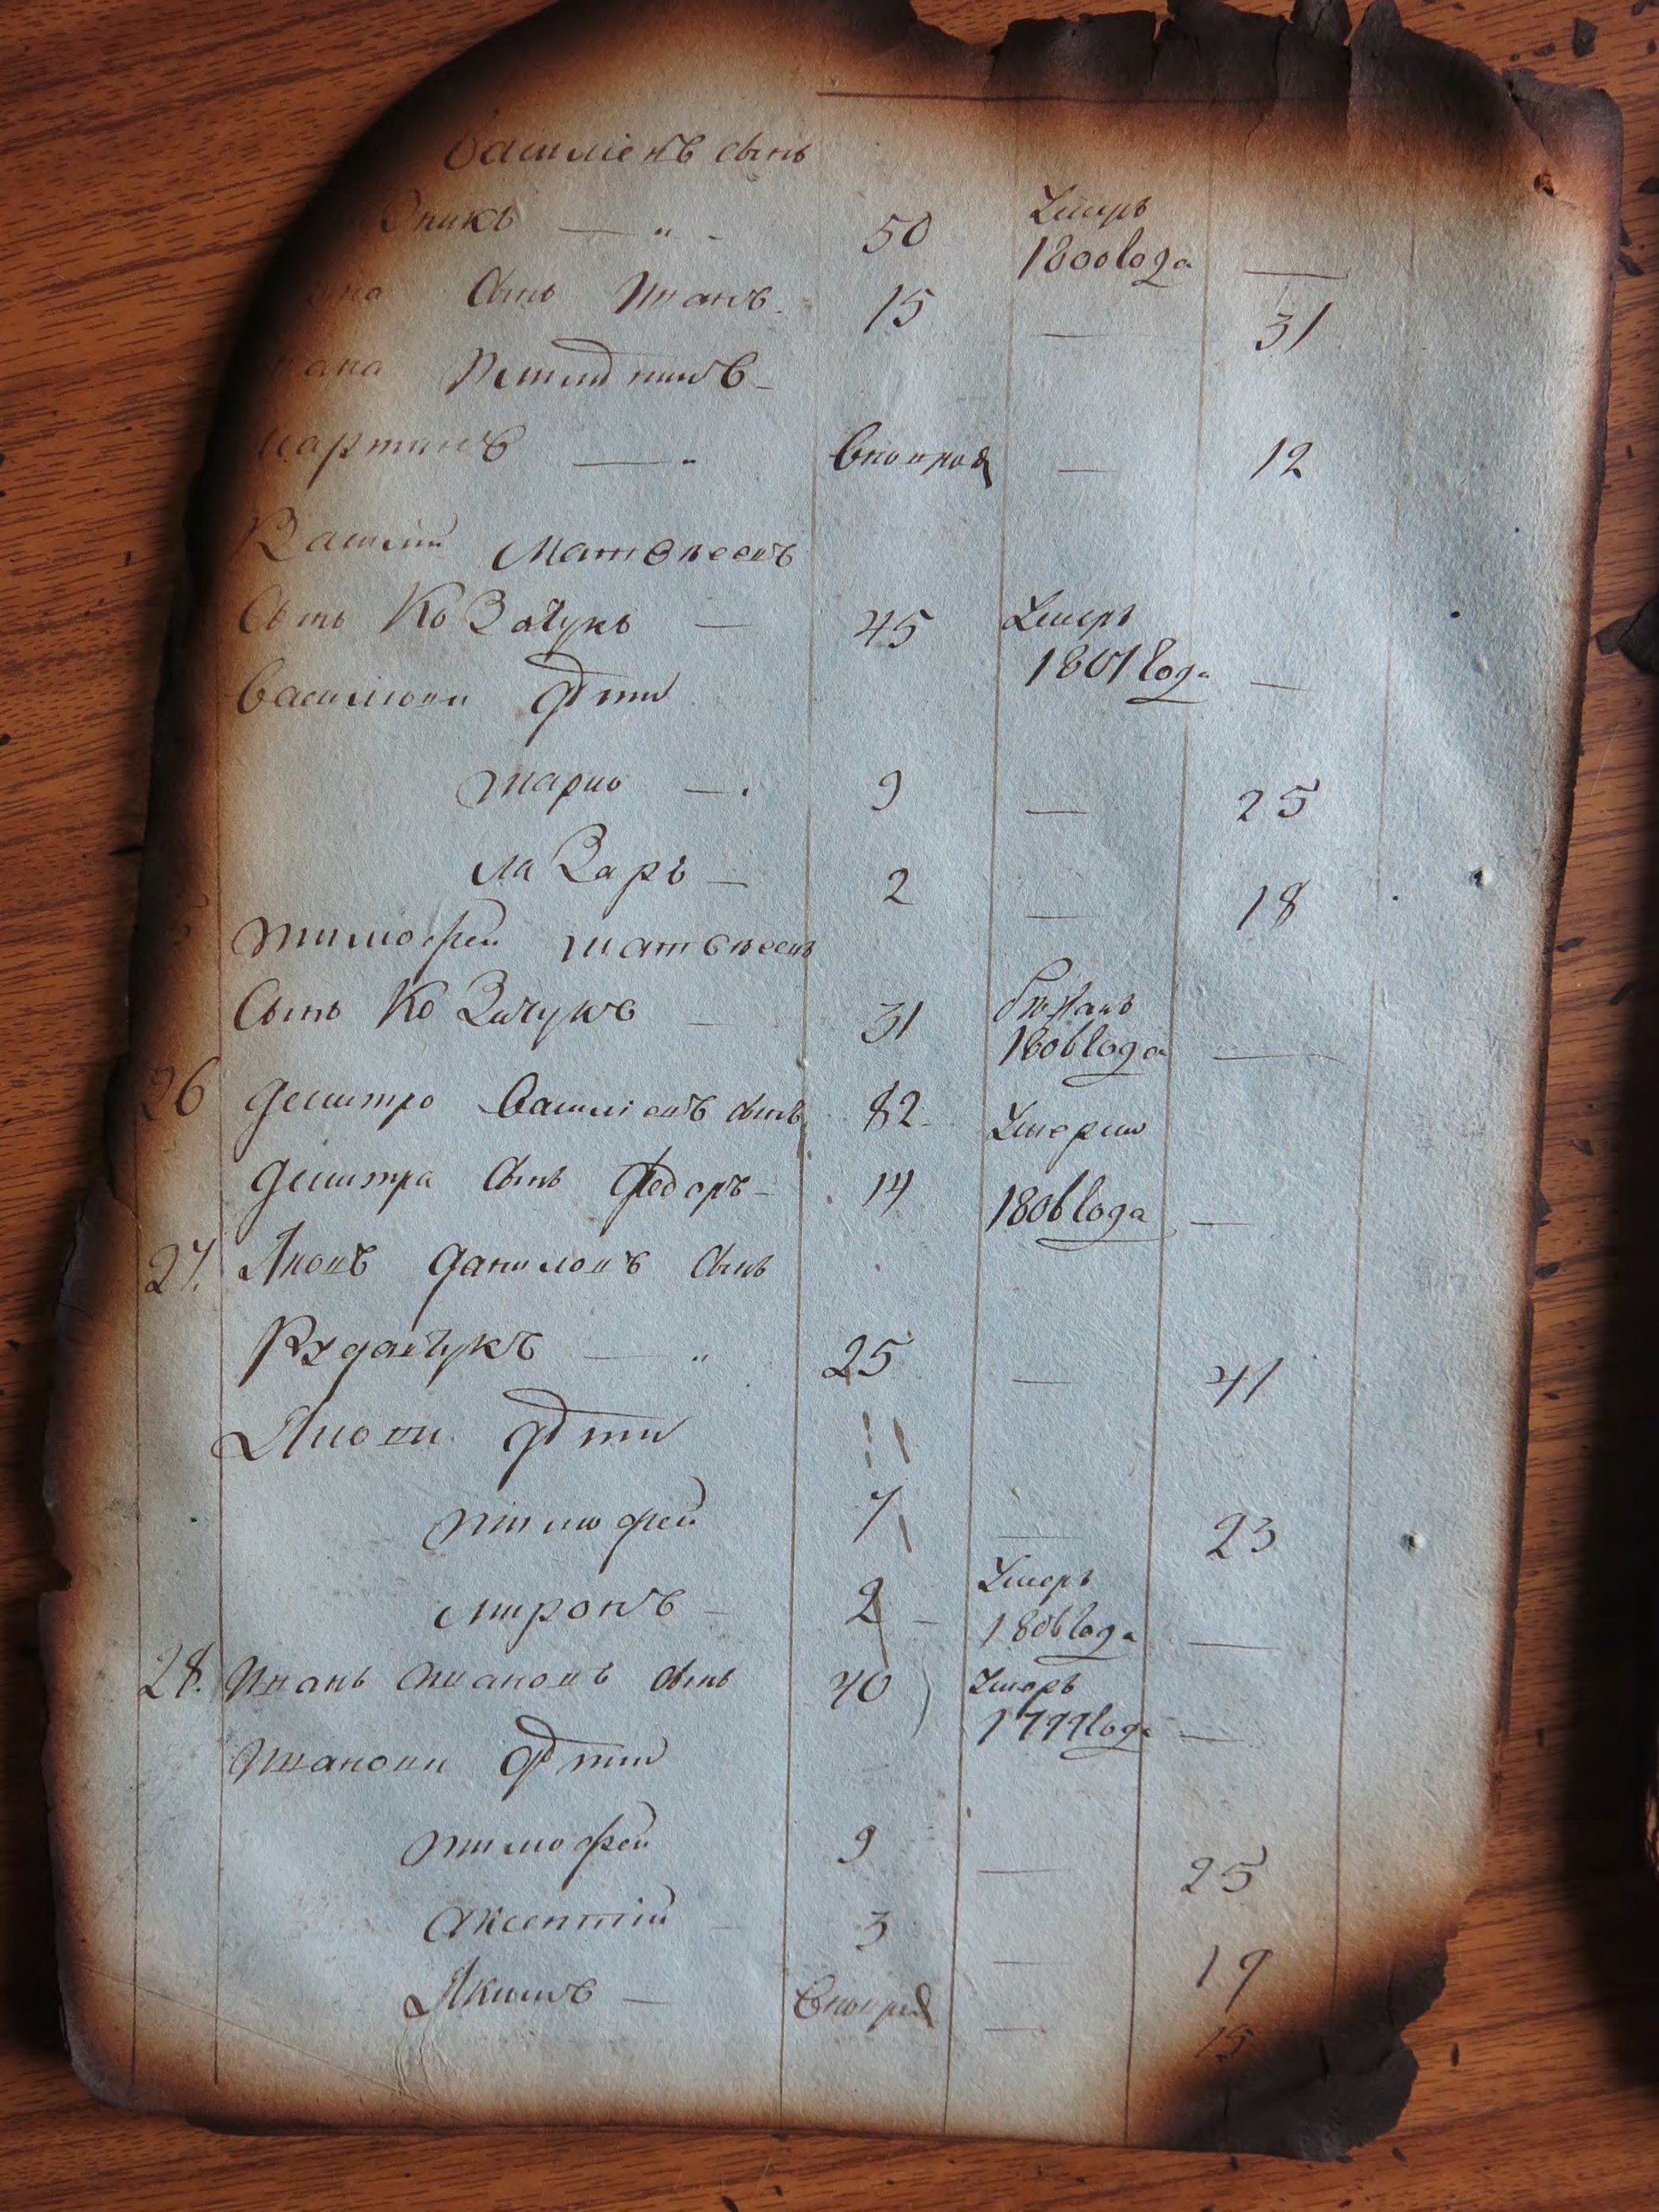 Василіевъ сынъ
никъ — " - 50 Умеръ
1800 года —
сынъ Иванъ 15 — 31
мартинъ — " вновьрож — 12
Василий Матвѣевъ
Сынъ Козачукъ — 45 Умеръ
1801 года —
Василіови дѣти
марко — 9 — 25
лазаръ — 2 — 18
тимофей матвѣевъ
Сынъ Козачукъ — 31
1806 года —
26 дмитро Василіевъ сынъ 82 Умерли
дмитра сынъ Федоръ — 14 1806 года —
27. Яковъ даниловъ сынъ
Рудачукъ — " 25 — 41
Якови дѣти
тимофей 7 — 23
миронъ — 2 — Умеръ
1806 года —
28. Иванъ Ивановъ сынъ 40 Умеръ
1799 года —
Иванови дѣти
тимофей 9 — 25
Аксентій — 3 — 19
Якимъ — вновьрож — 15